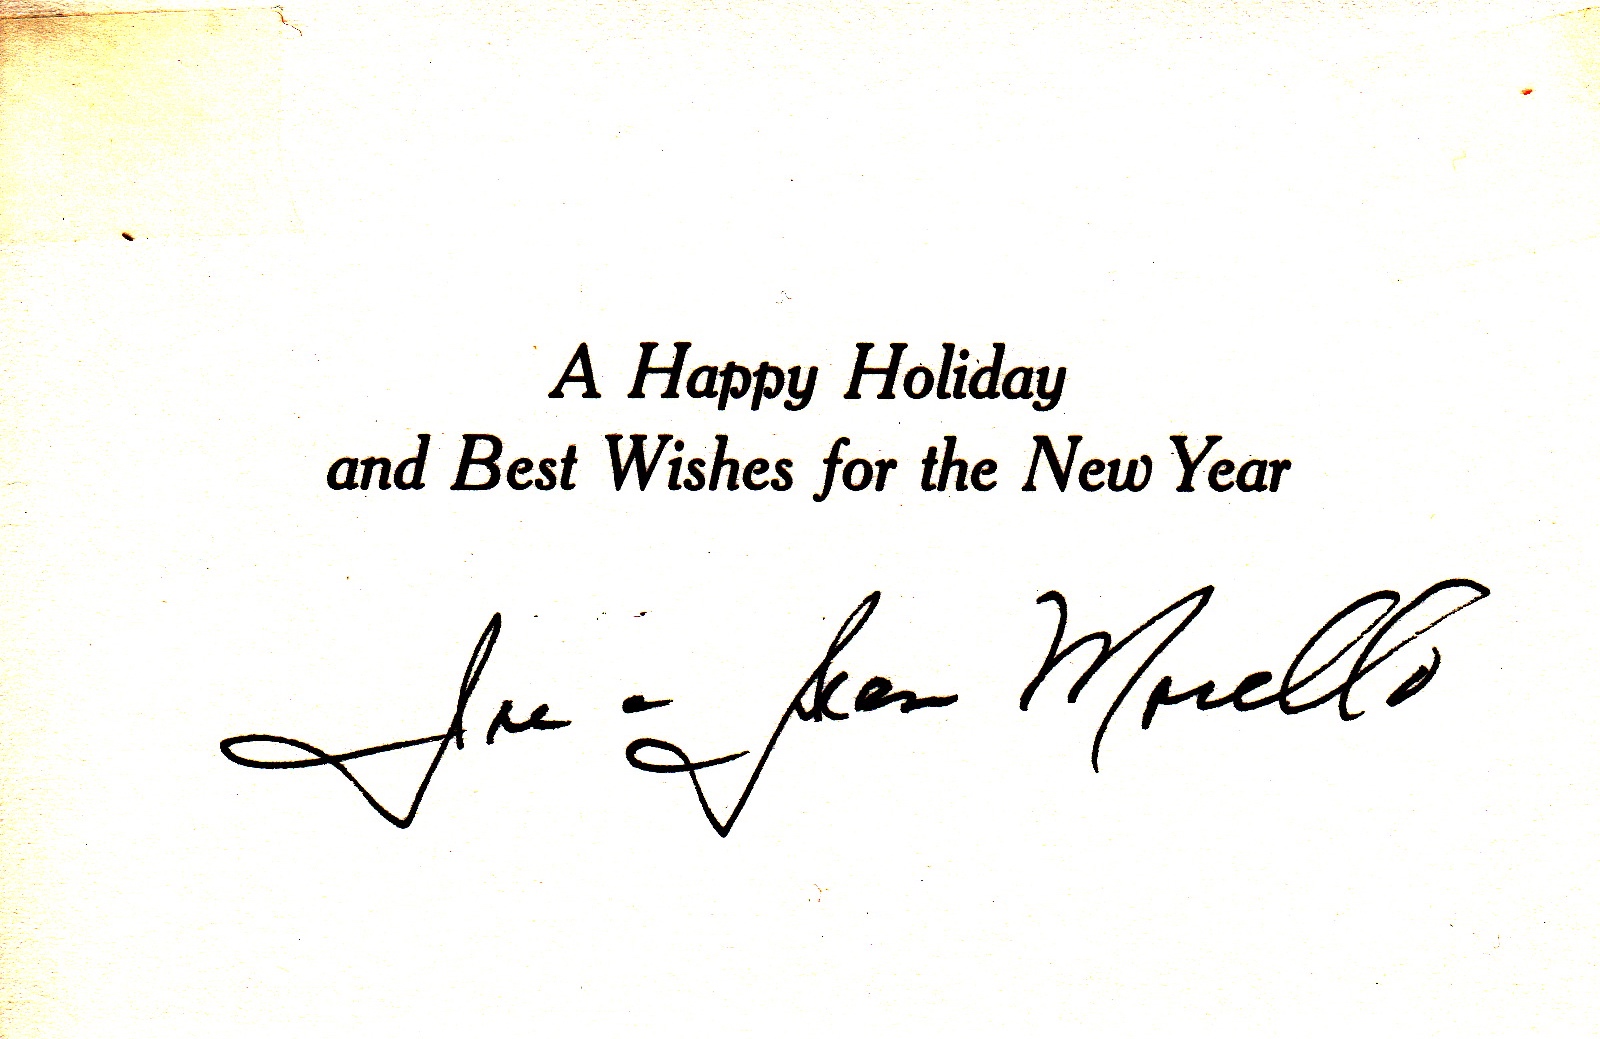 A Happy Holiday
and Best Wishes for the New Year
Joe - Jean Morello